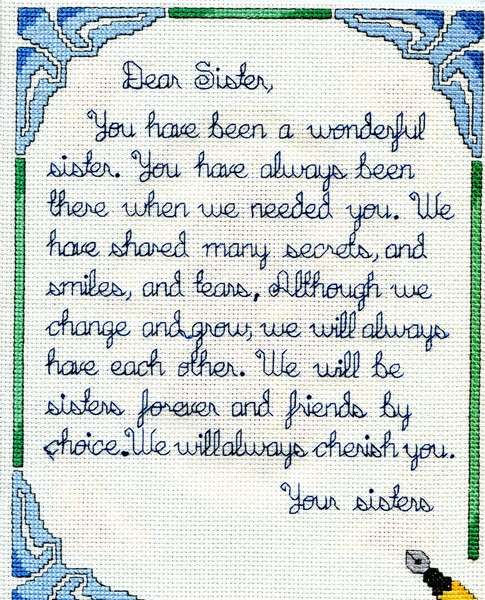 Dear Sister,
You have been a wonderful
sister. You have always been
there when we needed you. We
have shared many secrets, and
smiles, and tears. Although we
change and grow, we will always
have each other. We will be
sisters forever and friends by
choice. We will always cherish you.
Your sisters